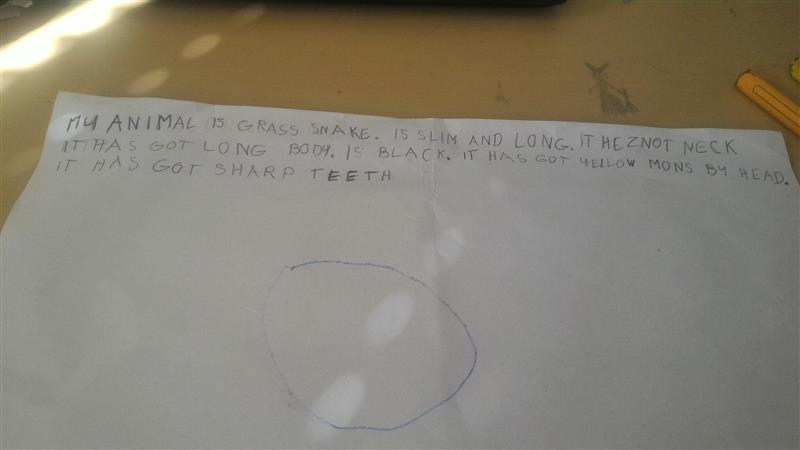 MY ANIMAL IS GRASS SNAKE. IS SLIM AND LONG. IT HEZNOT NECK
IT HAS GOT LONG BODY. IS BLACK. IT HAS GOT YELLOW MONS BY HEAD.
IT HAS GOT SHARP TEETH